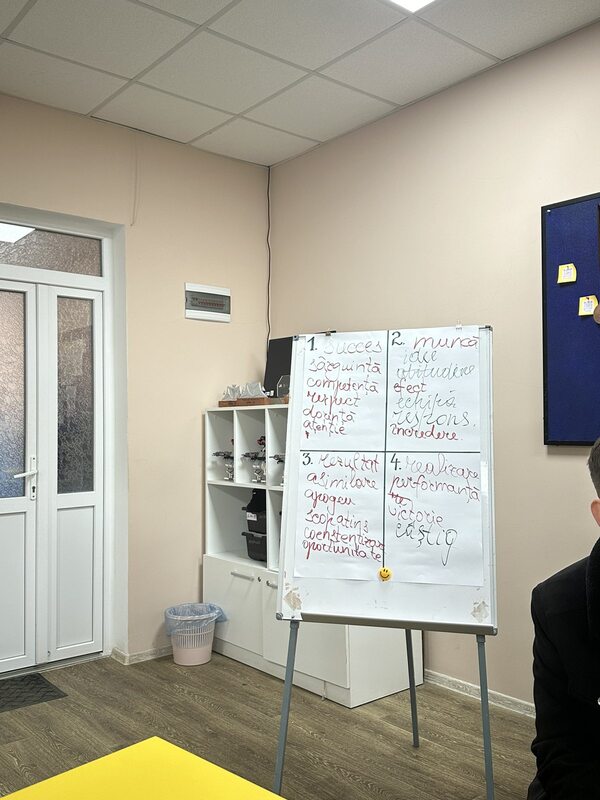 1. Succes
sârguință
competență
respect
dorință
atenție
2. muncă
idee
atitudine
efect
echipă
respons.
încredere
3. rezultat
asimilare
apogeu
scop atins
conștientizare
oportunitate
4. realizare
performanță
victorie
câștig